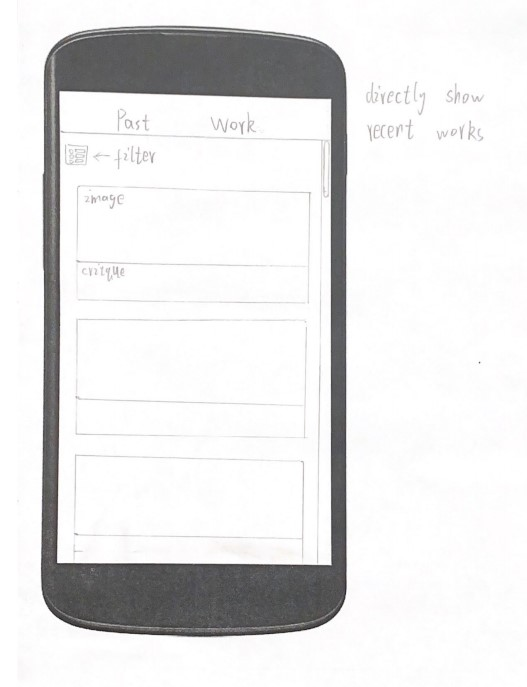 Past Work
← filter
image
critique
directly show
recent works